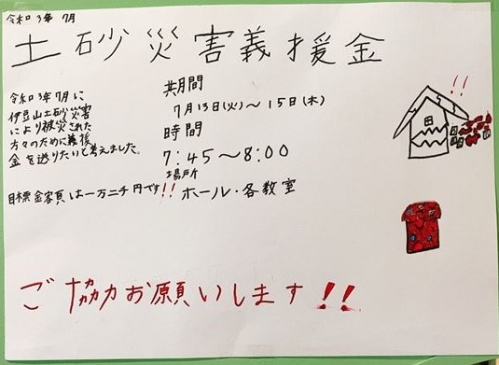 令和3年 7月
土砂災害義援金
令和3年7月に
伊豆山土砂災害
により被災された
方々のために義援
金を送りたいと考えました。
目標金額は一万二千円です!!
期間
7月13日(火)～15日(木)
時間
7:45～8:00
場所
ホール・各教室
!!
ご協力お願いします!!